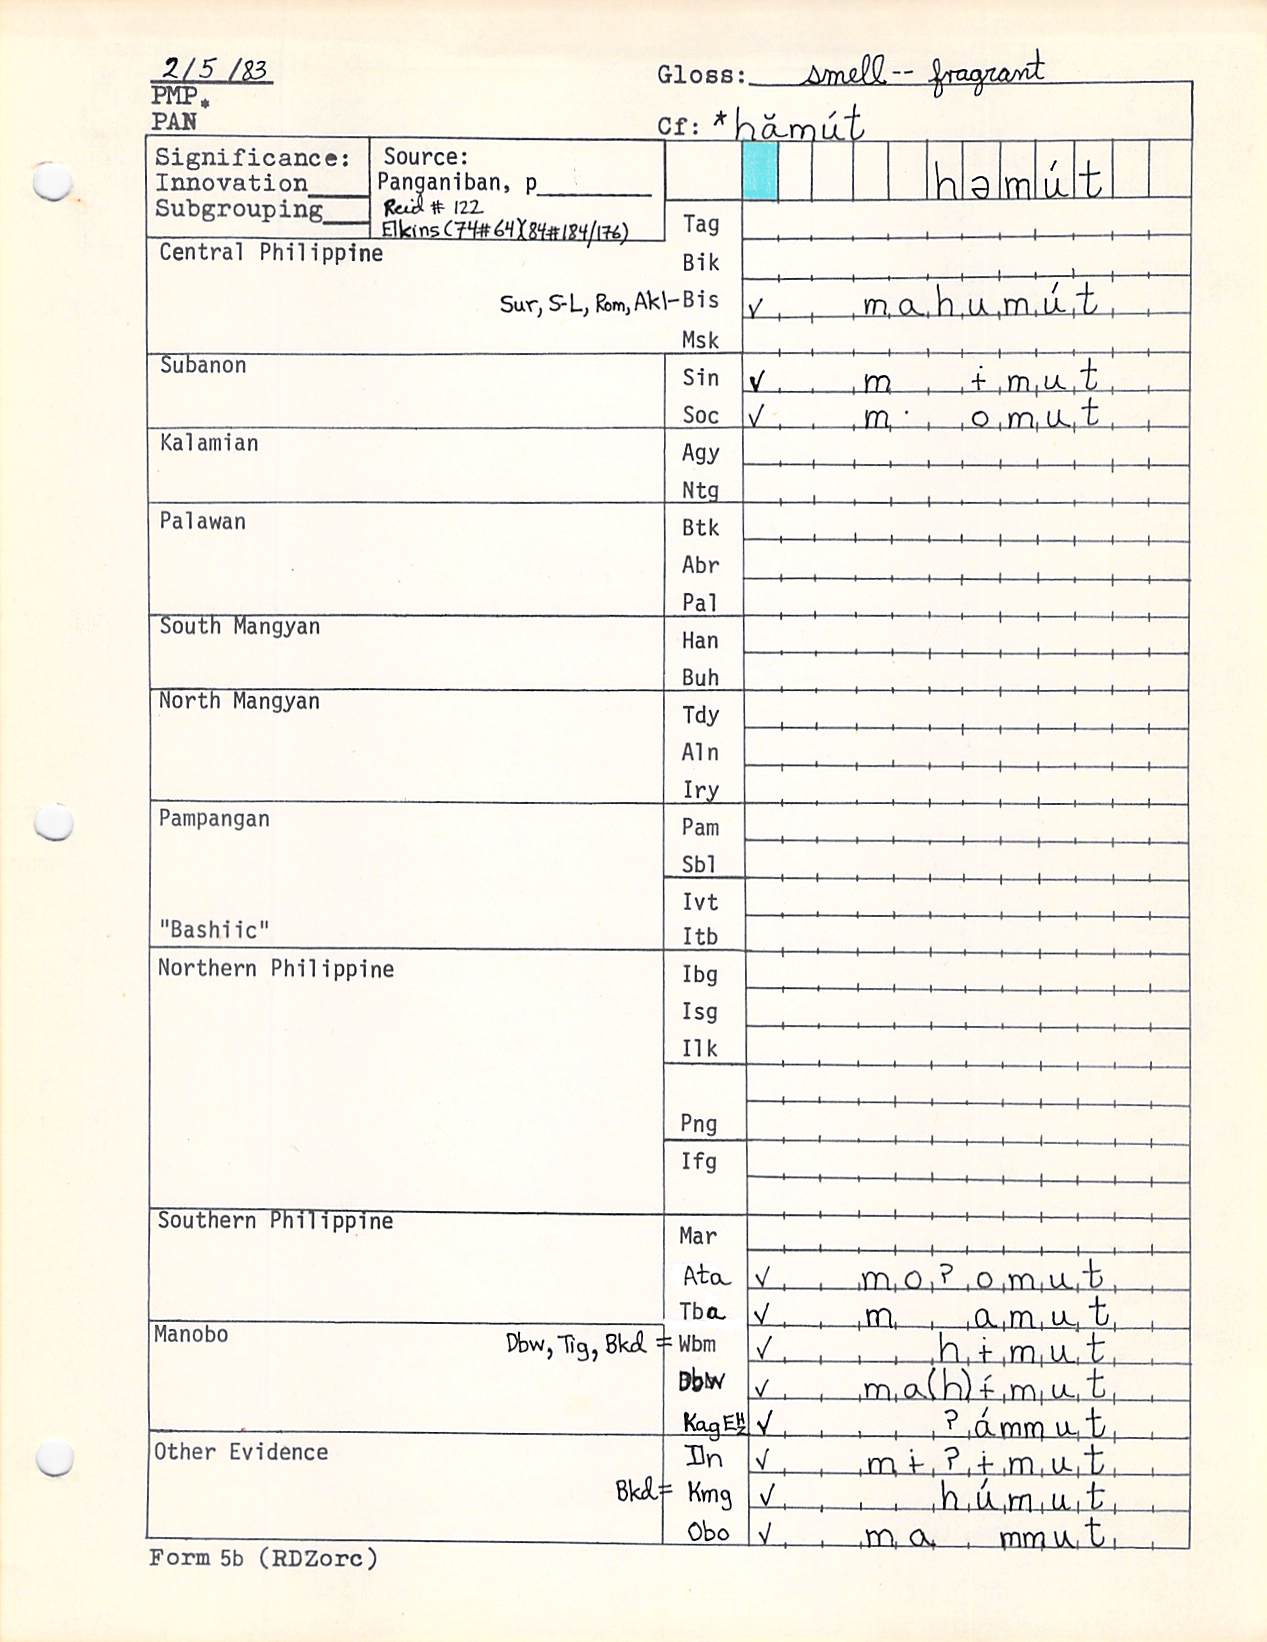 2/5/83
Gloss: smell-- fragrant
PMP*
PAN
Cf: *hămút
Significance:
Innovation
Subgrouping
Source:
Panganiban, p
Reid # 122
Elkins (74#64)(84#184/176)
həmút
Tag
Central Philippine
Bik
Sur, S-L, Rom, Akl-Bis ✓ mahumút
Msk
Subanon
Sin ✓ m ɨmut
Soc ✓ m· omut
Kalamian
Agy
Ntg
Palawan
Btk
Abr
Pal
South Mangyan
Han
Buh
North Mangyan
Tdy
Aln
Iry
Pampangan
Pam
Sbl
Ivt
"Bashiic"
Itb
Northern Philippine
Ibg
Isg
Ilk
Png
Ifg
Southern Philippine
Mar
Ata ✓ mo?omut
Tba ✓ m amut
Manobo
Dbw, Tig, Bkd = Wbm ✓ hɨmut
Dbw ✓ ma(h)ɨ́mut
Kag ✓ ?ámmut
Other Evidence
Iln ✓ mɨ?ɨmut
Bkd= Kmg ✓ húmut
Obo ✓ ma mmut
Form 5b (RDZorc)